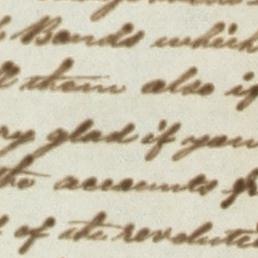 Bonds which
them also if
glad if you
the accounts
of the revoluti